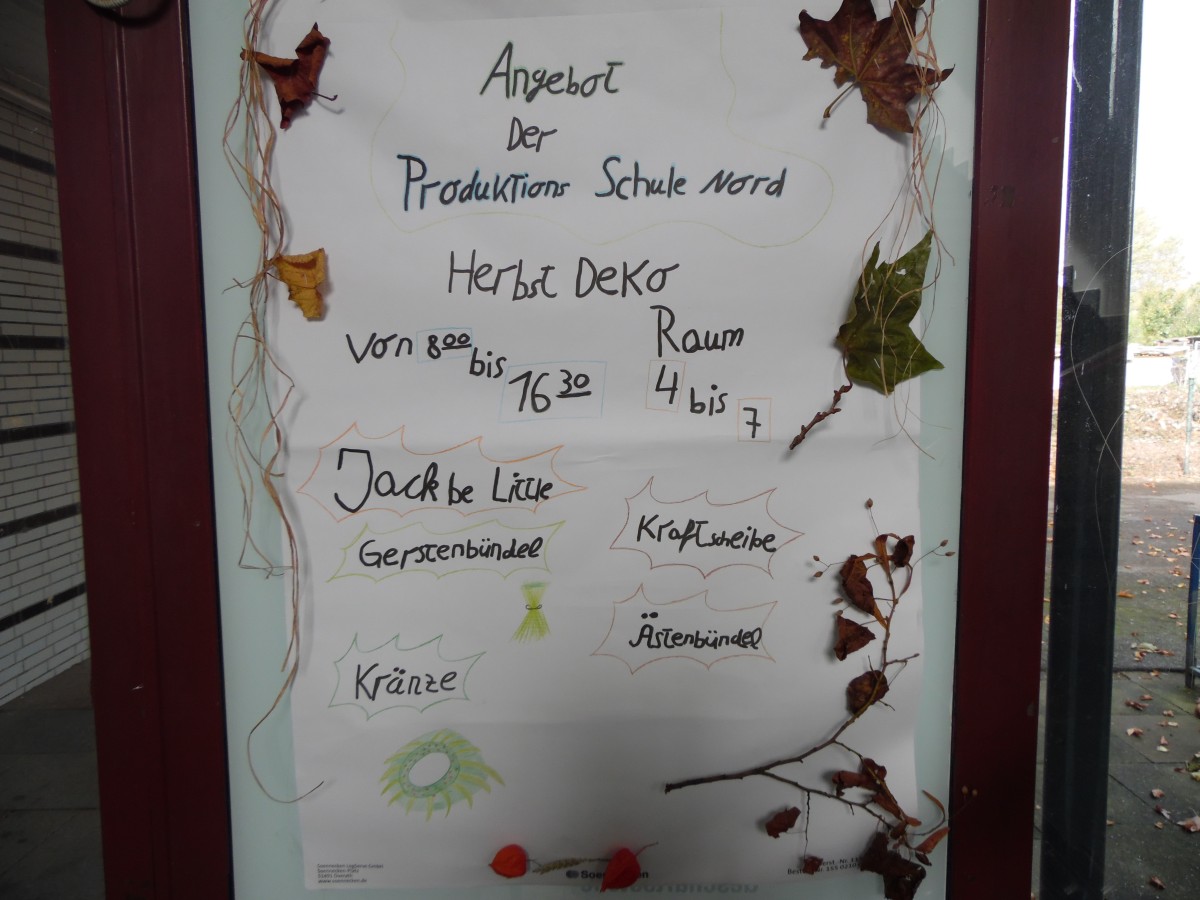 Angebot
Der
Produktions Schule Nord
Herbst Deko
Von 8⁰⁰ bis 16³⁰
Raum 4 bis 7
Jack be Little
Gerstenbündel
Kraftscheibe
Ästenbündel
Kränze